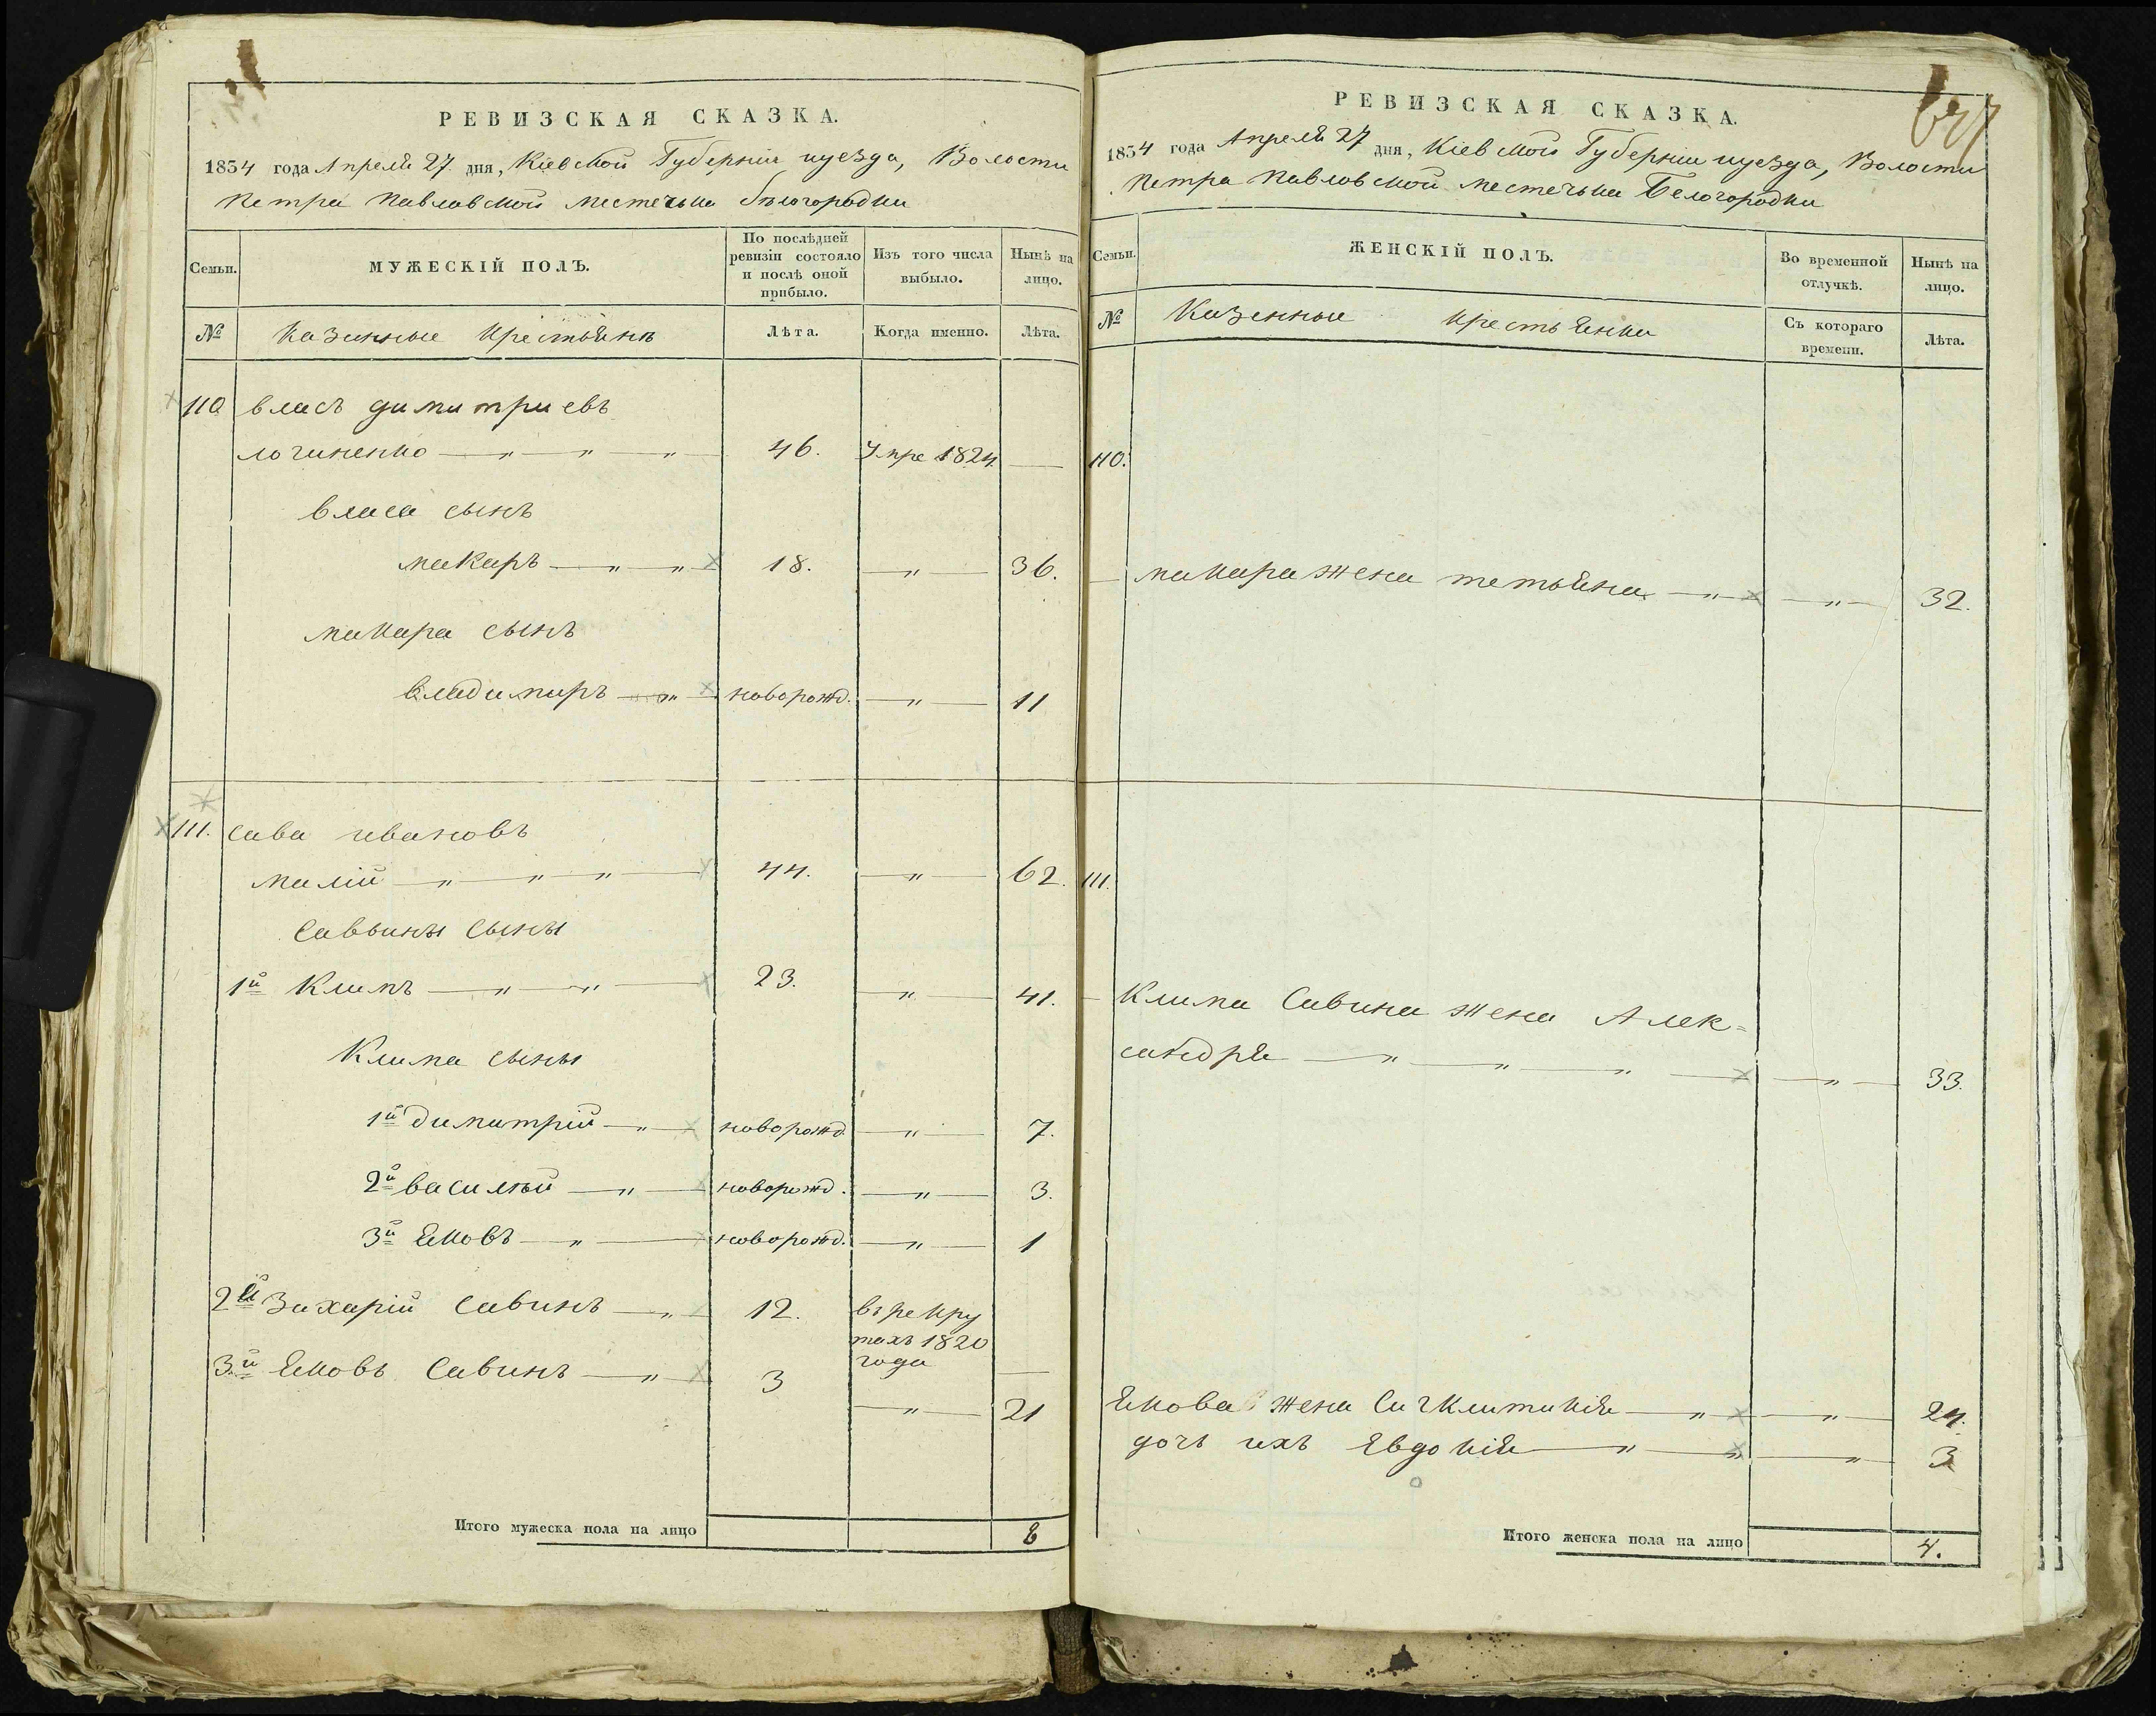 РЕВИЗСКАЯ СКАЗКА.
1834 года Апреля 27 дня, Кіевской Губерніи иуезда, Волости
Петра Павловской местечька бѣлогородки
Семьи. МУЖЕСКІЙ ПОЛЪ. По послѣдней ревизіи состояло и послѣ оной прибыло. Изъ того числа выбыло. Нынѣ на лицо.
№ Казенные крестьянѣ Лѣта. Когда именно. Лѣта.
110 власъ димитриевъ
логиненко — „ — „ — „ 46. Умре 1824 —
власа сынъ
макаръ — „ — „ 18. — „ — 36.
макара сынъ
владимиръ — „ — новорожд. — „ — 11
111. сава ивановъ
малій — „ — „ — „ — 44. — „ — 62.
саввины сыны
1й Климъ — „ — „ — 23. — „ — 41.
Клима сыны
1й димитрій — „ — новорожд — „ — 7.
2й василій — „ — новорожд. — „ — 3.
3й яковъ — „ — новорожд. — „ — 1
2й Захарій савинъ — „ — 12. въ рекру
тахъ 1820
года —
3й яковъ Савинъ — „ — 3 — „ — 21
Итого мужеска пола на лицо 8
РЕВИЗСКАЯ СКАЗКА.
1834 года Апреля 27 дня, Кіевской Губерніи иуезда, Волости
Петра Павловской местечька Белогородки
Семьи. ЖЕНСКІЙ ПОЛЪ. Во временной отлучкѣ. Нынѣ на лицо.
№ Казенные крестьянки Съ котораго времени. Лѣта.
110.
— макара жена тетьяна — „ — — „ — 32.
111.
— Клима Савина жена Алек=
сандра — „ — „ — „ — — „ — 33.
якова жена Сигклитикія — „ — — „ — 24.
дочь ихъ Евдокія — „ — „ — „ — 3
Итого женска пола на лицо 4.